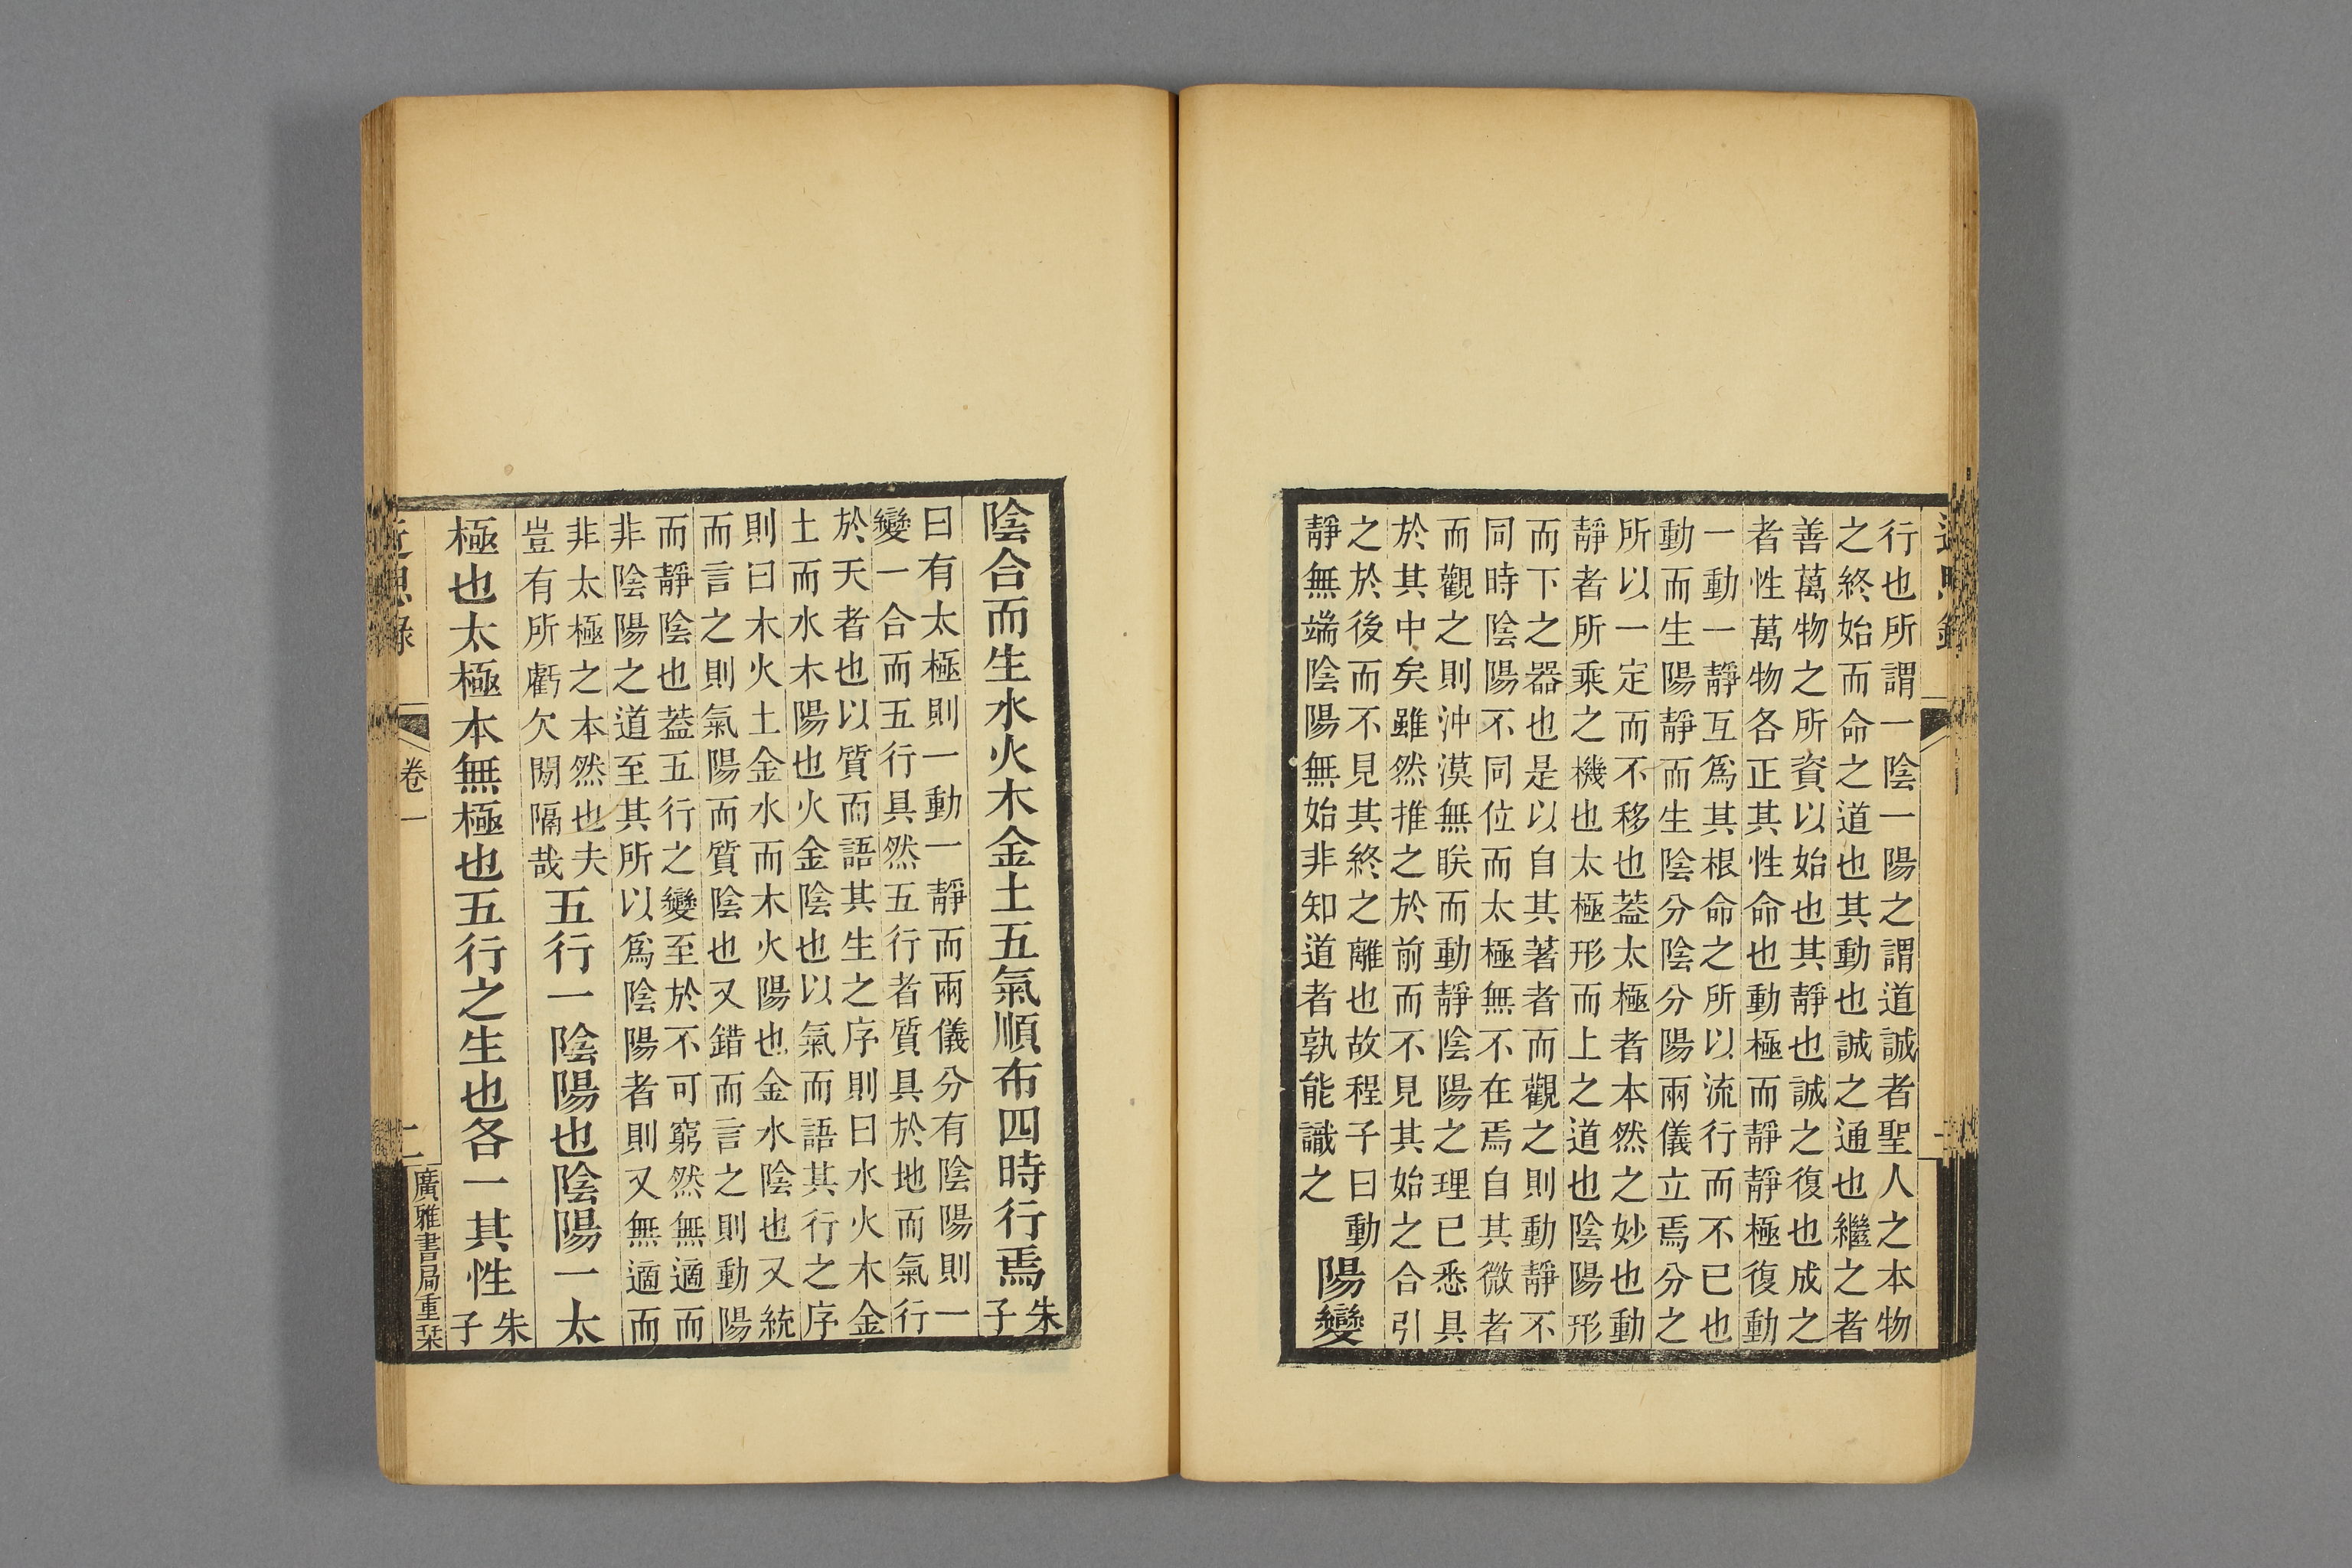 行也所謂一陰一陽之謂道誠者聖人之本物
之終始而命之道也其動也誠之通也繼之者
善萬物之所資以始也其靜也誠之復也成之
者性萬物各正其性命也動極而靜靜極復動
一動一靜互爲其根命之所以流行而不已也
動而生陽靜而生陰分陰分陽兩儀立焉分之
所以一定而不移也蓋太極者本然之妙也動
靜者所乘之機也太極形而上之道也陰陽形
而下之器也是以自其著者而觀之則動靜不
同時陰陽不同位而太極無不在焉自其微者
而觀之則沖漠無眹而動靜陰陽之理已悉具
於其中矣雖然推之於前而不見其始之合引
之於後而不見其終之離也故程子曰動
靜無端陰陽無始非知道者孰能識之
陽變
陰合而生水火木金土五氣順布四時行焉
朱
子
曰有太極則一動一靜而兩儀分有陰陽則一
變一合而五行具然五行者質具於地而氣行
於天者也以質而語其生之序則曰水火木金
土而水木陽也火金陰也以氣而語其行之序
則曰木火土金水而木火陽也金水陰也又統
而言之則氣陽而質陰也又錯而言之則動陽
而靜陰也蓋五行之變至於不可窮然無適而
非陰陽之道至其所以爲陰陽者則又無適而
非太極之本然也夫
豈有所虧欠閒隔哉
五行一陰陽也陰陽一太
極也太極本無極也五行之生也各一其性
朱
子
近思錄
卷一
二
廣雅書局重栞